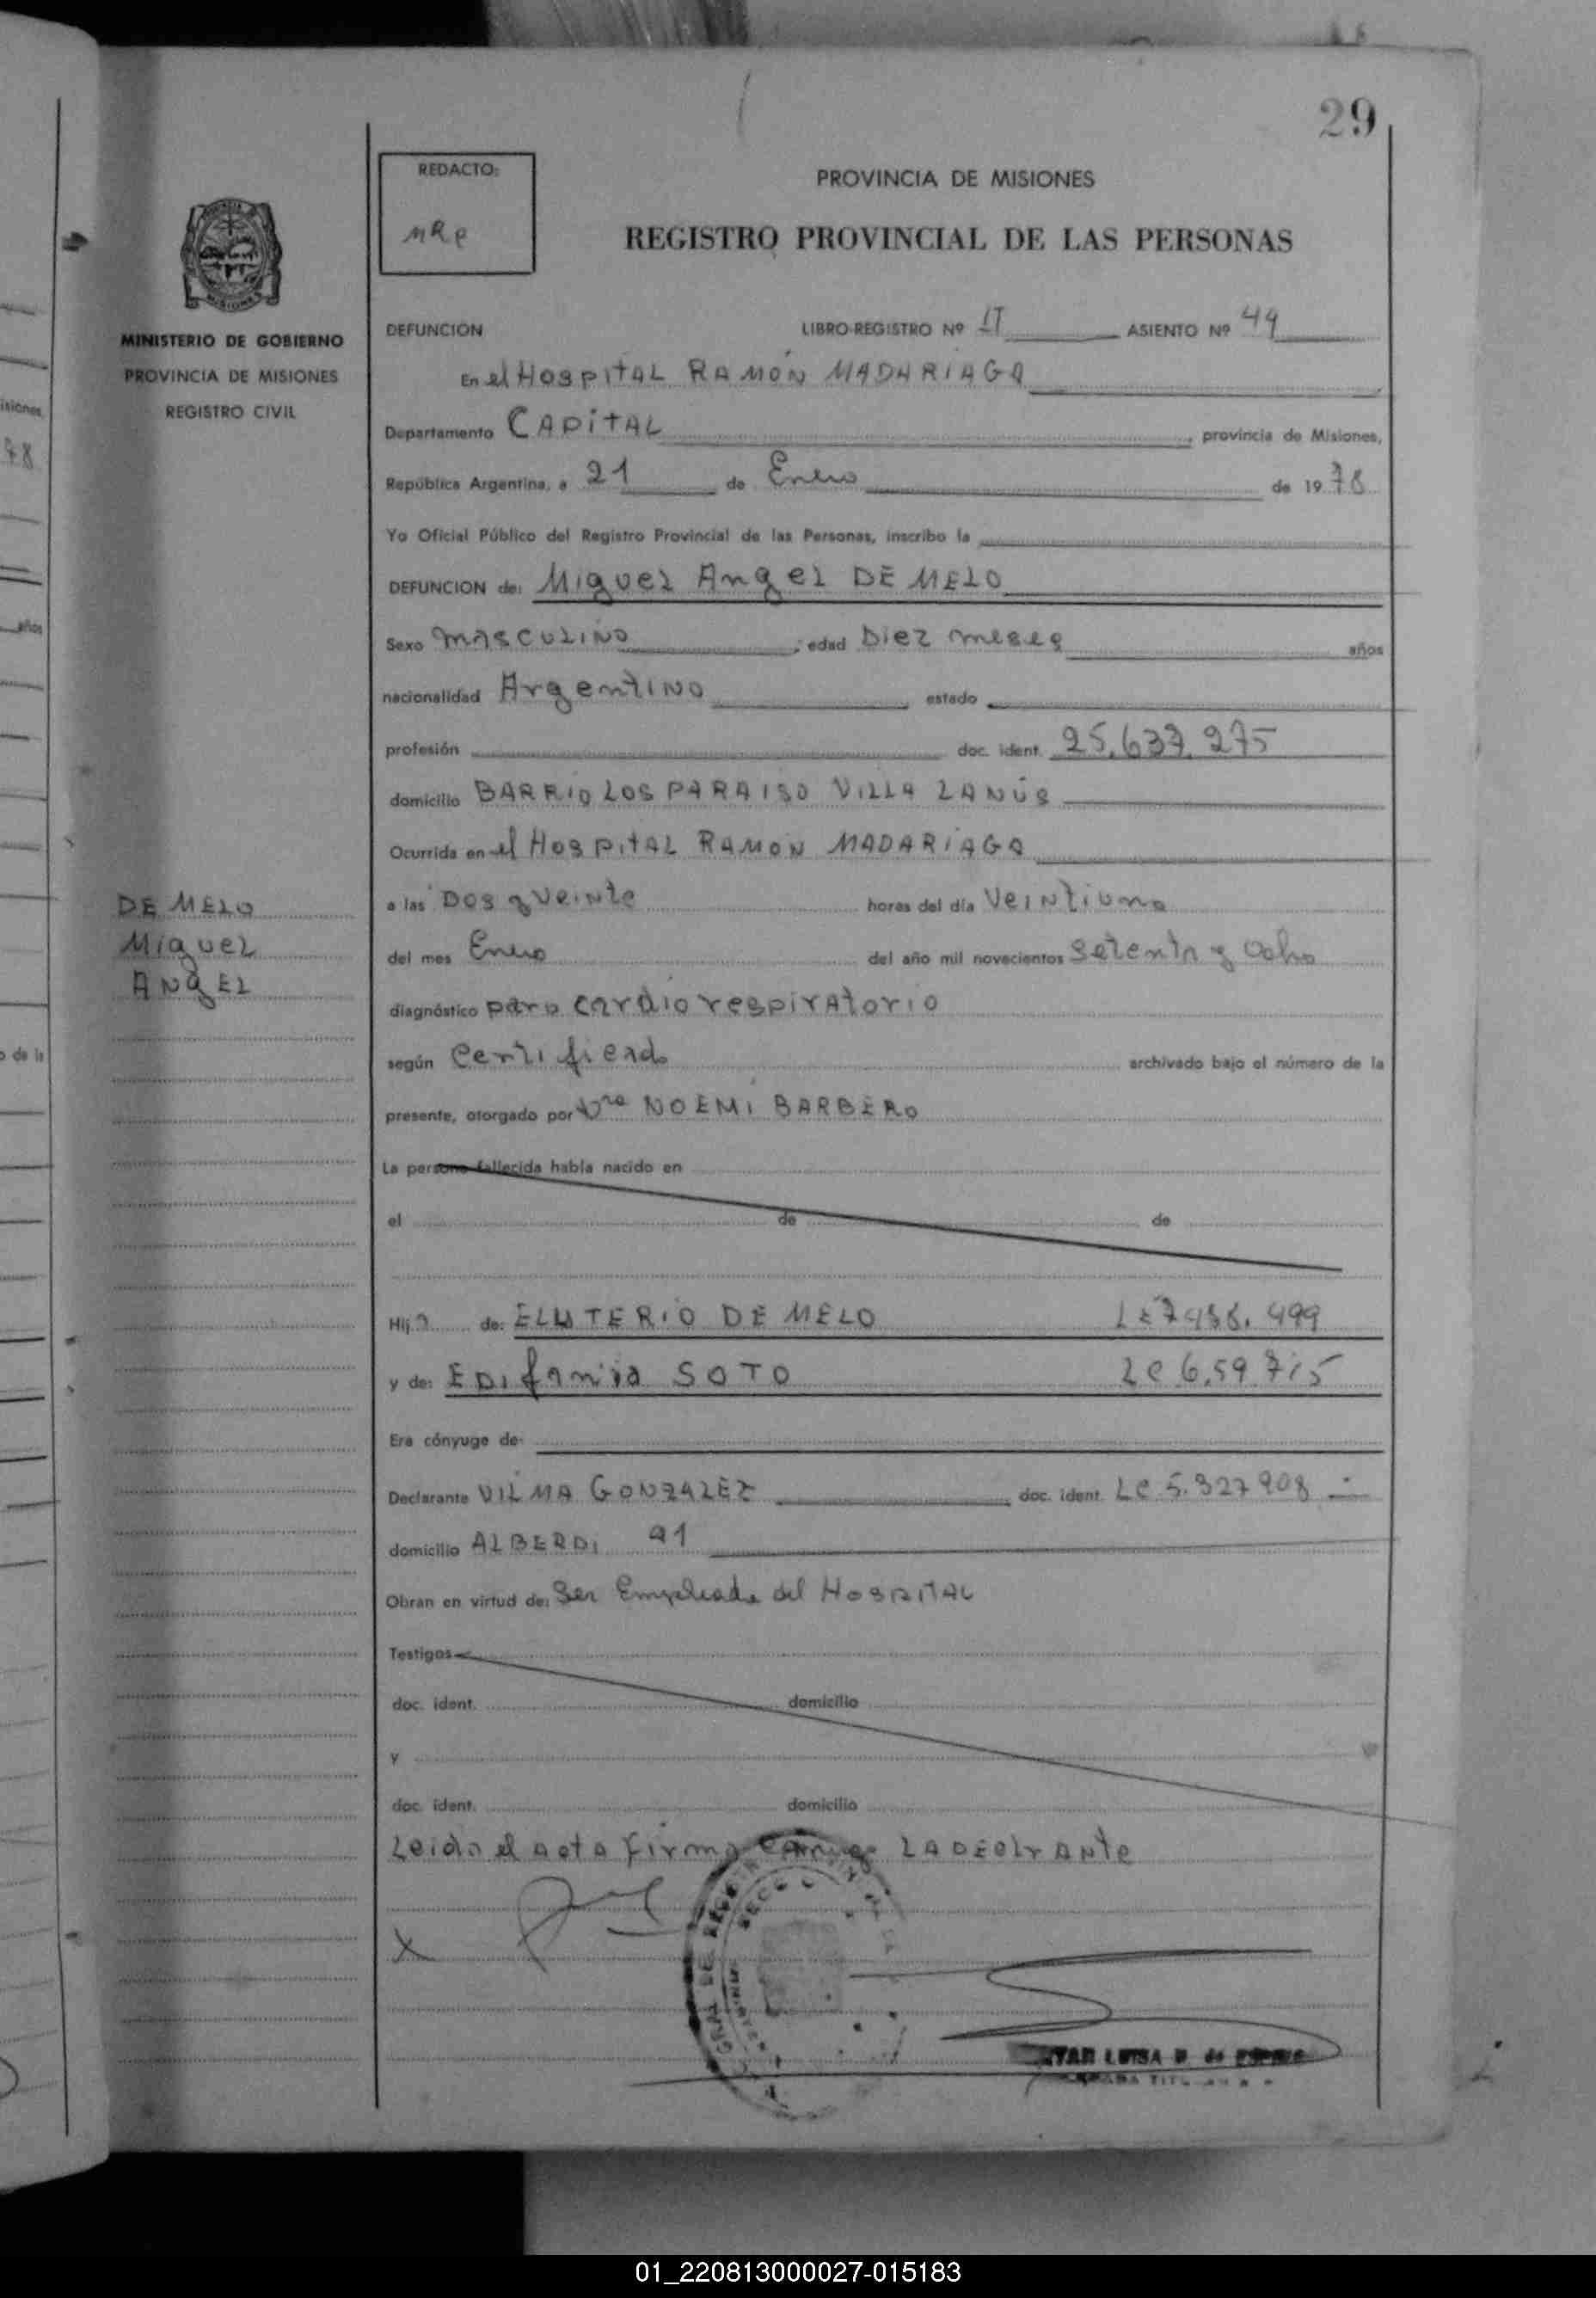 29
REDACTO:
MRe
PROVINCIA DE MISIONES
REGISTRO PROVINCIAL DE LAS PERSONAS
MINISTERIO DE GOBIERNO
PROVINCIA DE MISIONES
REGISTRO CIVIL
DEFUNCION LIBRO-REGISTRO Nº II ASIENTO Nº 49
En el HospitAL RAMÓN MADARIAGA
Departamento CAPitAL, provincia de Misiones,
República Argentina, a 21 de Enero de 1978
Yo Oficial Público del Registro Provincial de las Personas, inscribo la
DEFUNCION de: Miguel Angel DE MELO
Sexo mASCULINO; edad Diez meses años
nacionalidad ArgentiNO estado
profesión doc. ident. 25.637.275
domicilio BARRIO LOS PARAISO VILLA LANÚS
Ocurrida en el HospitAL RAMON MADARIAGA
a las Dos y veinte horas del día Veintiuno
del mes Enero del año mil novecientos Setenta y Ocho
diagnóstico paro cardiorespiratorio
según Certificado archivado bajo el número de la
presente, otorgado por Dra NOEMI BARBERO
DE MELO
Miguel
ANgEL
La persona fallecida había nacido en
el de de
Hijo de: ELUTERIO DE MELO LE 7.486.499
y de: EDifania SOTO LC 6.59 715
Era cónyuge de:
Declarante VILMA GONZALEZ doc. ident. LC 5.327908
domicilio ALBERDI 91
Obran en virtud de: Ser Empleada del HOSPITAL
Testigos
doc. ident. domicilio
y
doc. ident. domicilio
Leida el acta firma conmigo LA DEClrANte
X
LUISA
01_220813000027-015183